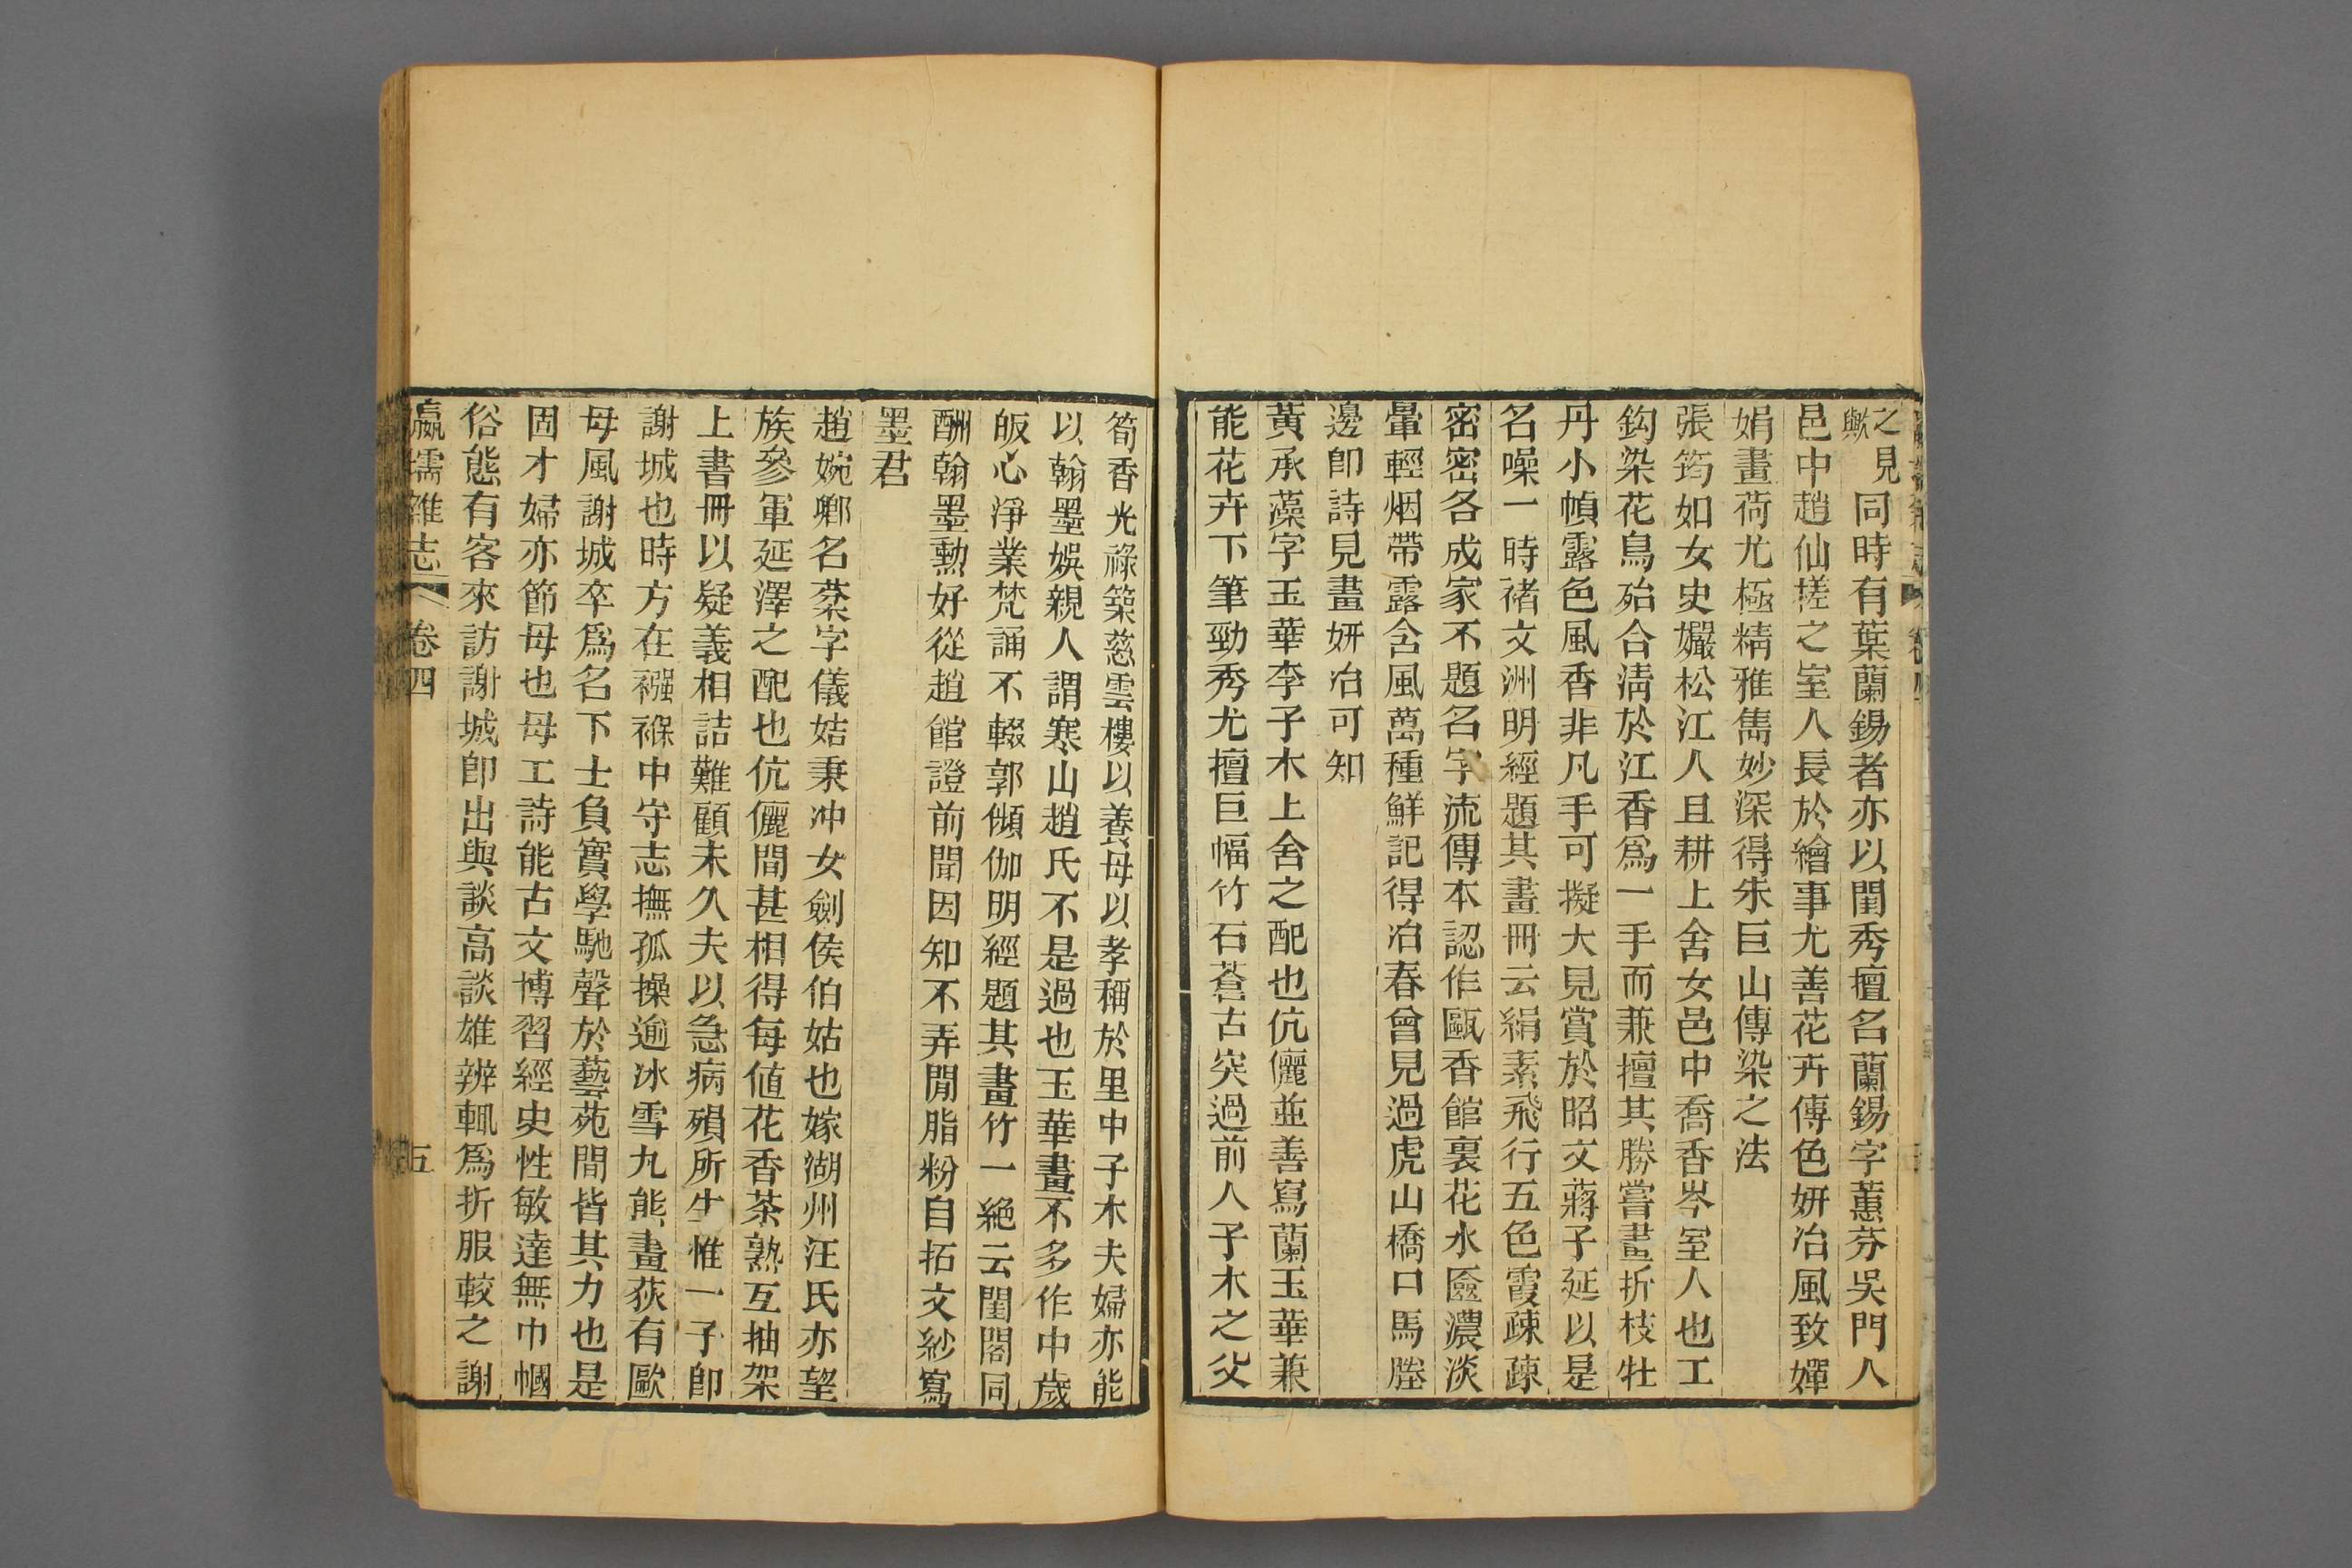 之見
歟
同時有葉蘭錫者亦以閨秀擅名蘭錫字蕙芬吳門人
邑中趙仙槎之室人長於繪事尤善花卉傅色妍冶風致嬋
娟畫荷尤極精雅雋妙深得朱巨山傅染之法
張筠如女史孅松江人且耕上舍女邑中喬香岑室人也工
鈎染花鳥殆合淸於江香爲一手而兼擅其勝嘗畫折枝牡
丹小幀露色風香非凡手可擬大見賞於昭文蔣子延以是
名噪一時褚文洲明經題其畫冊云絹素飛行五色霞疎疎
密密各成家不題名字流傳本認作甌香館裏花水匳濃淡
暈輕烟帶露含風萬種鮮記得冶春曾見過虎山橋口馬塍
邊卽詩見畫妍冶可知
黃承藻字玉華李子木上舍之配也伉儷並善寫蘭玉華兼
能花卉下筆勁秀尤擅巨幅竹石蒼古突過前人子木之父
筍香光祿築慈雲樓以養母以孝稱於里中子木夫婦亦能
以翰墨娛親人謂寒山趙氏不是過也玉華畫不多作中歲
皈心淨業梵誦不輟郭傾伽明經題其畫竹一絕云閨閣同
酬翰墨勳好從趙館證前聞因知不弄閒脂粉自拓文紗寫
墨君
趙婉卿名棻字儀姞秉冲女劍侯伯姑也嫁湖州汪氏亦望
族參軍延澤之配也伉儷間甚相得每値花香茶熟互抽架
上書冊以疑義相詰難顧未久夫以急病殞所生惟一子卽
謝城也時方在襁褓中守志撫孤操逾冰雪丸能畫荻有歐
母風謝城卒爲名下士負實學馳聲於藝苑間皆其力也是
固才婦亦節母也母工詩能古文博習經史性敏達無巾幗
俗態有客來訪謝城卽出與談高談雄辨輒爲折服較之謝
瀛壖雜志 卷四 五